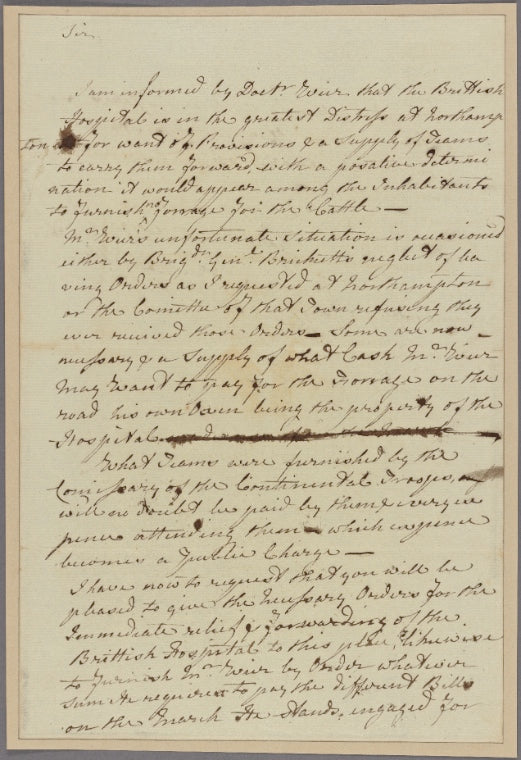 Sir
I am informed by Doctr. Weir that the Brittish
Hospital is in the greatest Distress at Northamp
ton for want of Provisions & a Supply of Teams
to carry them forward, with a posative determi
nation it would appear among the Inhabitants
to furnish no forrage for the Cattle —
Mr. Weir's unfortunate situation is ocasioned
either by Brigdr. Genl. Bricketts neglect of lea
ving Orders as I requested at Northampton
or the Comittee of that Town refusing they
ever received those Orders — Some are now
nessary & a Supply of what Cash Mr. Weir
may want to pay for the Forrage on the
road his own Oxen being the property of the
Hospital
What Teams were furnished by the
Comissary of the Continental Troops,
will no doubt be paid by them & every ex
pence attending them — which expence
becomes a Public Charge —
I have now to request that you will be
pleased to give the necessary Orders for the
Immediate relief & forwarding of the
Brittish Hospital to this place, likewise
to furnish Mr. Weir by Order whatever
sum He requires to pay the different Bills
on the March He Stands, engaged for